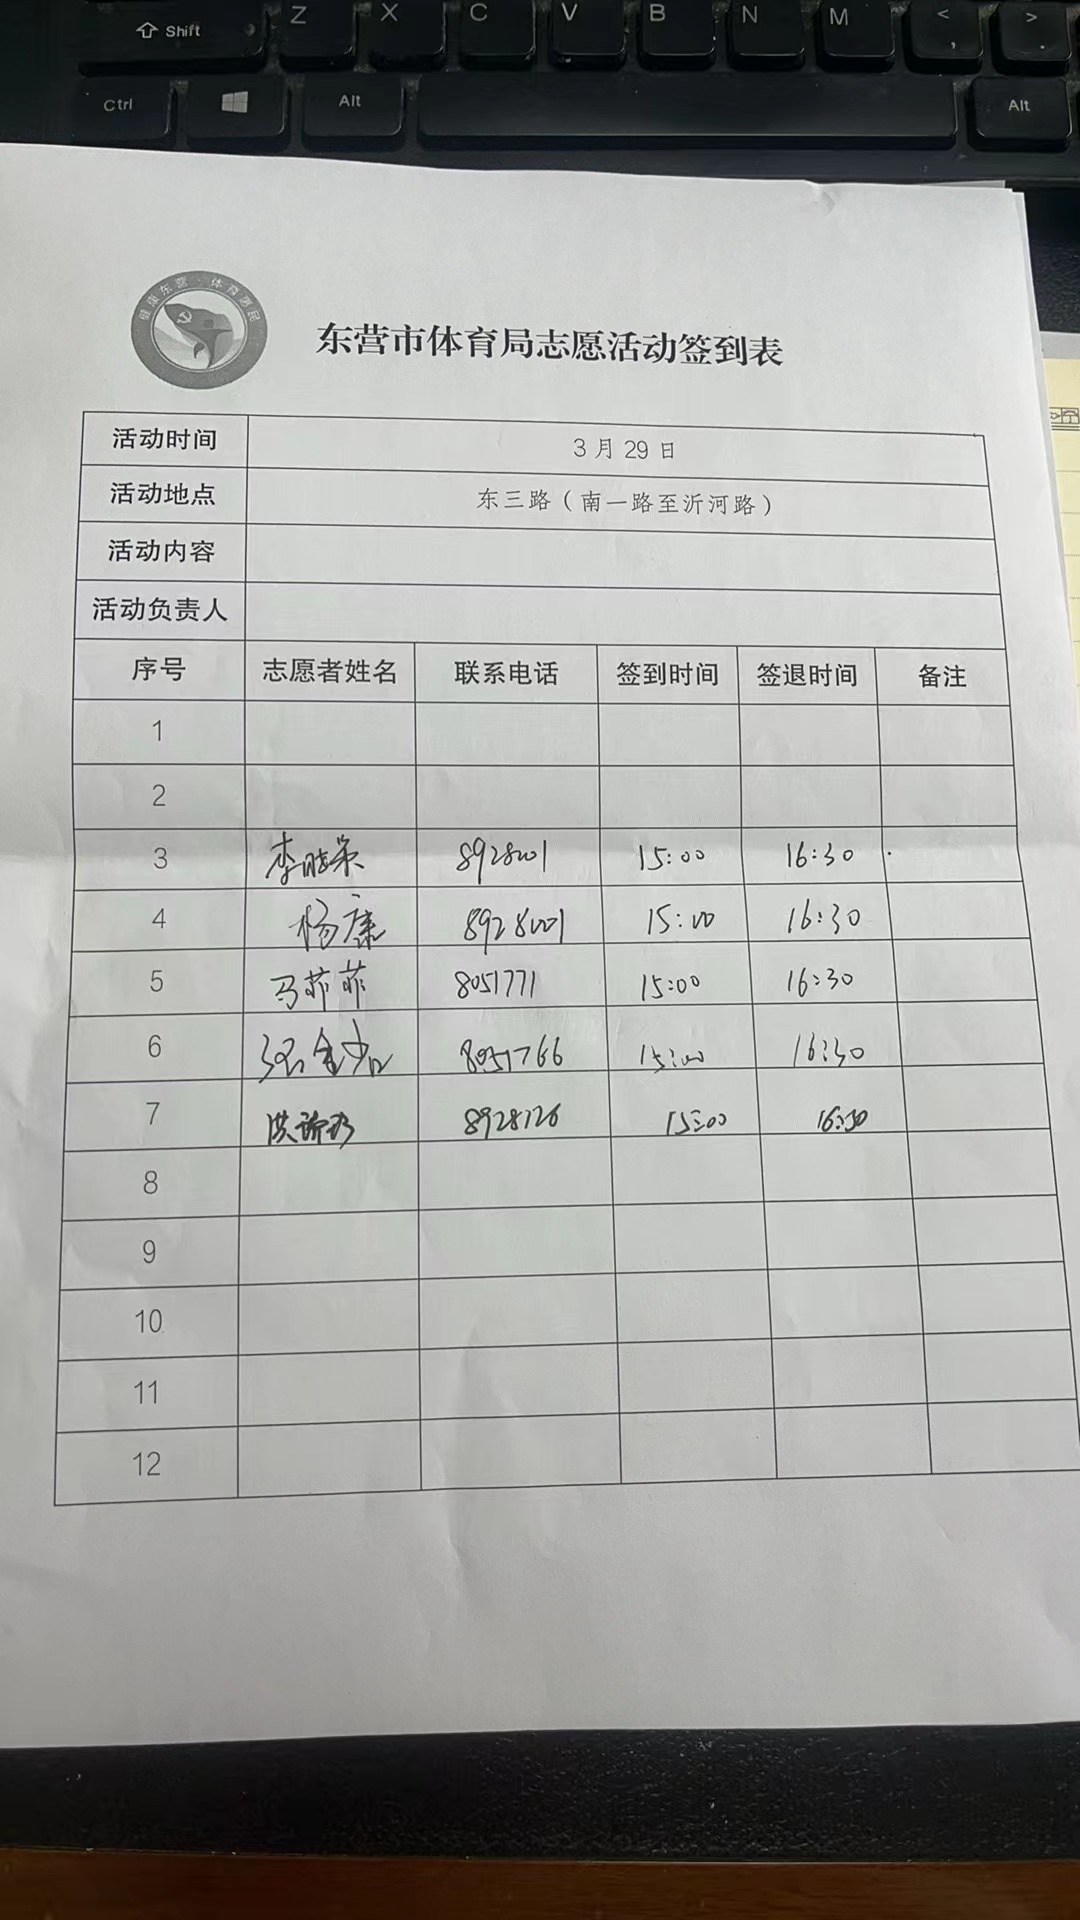 Shift Z X C V B N M < , > .
Ctrl Alt Alt
健康东营·体育惠民
东营市体育局志愿活动签到表
活动时间 3月29日
活动地点 东三路（南一路至沂河路）
活动内容
活动负责人
序号 志愿者姓名 联系电话 签到时间 签退时间 备注
1
2
3 李 8928001 15:00 16:30
4 杨康 8928001 15:00 16:30
5 马菲菲 8051771 15:00 16:30
6 8051766 15:00 16:30
7 洪 8928126 15:00 16:30
8
9
10
11
12